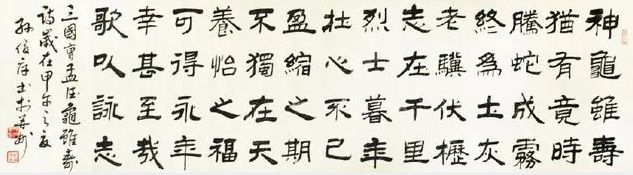 神龜雖壽
猶有竟時
騰蛇成霧
終為土灰
老驥伏櫪
志在千里
烈士暮年
壯心不已
盈縮之期
不獨在天
養怡之福
可得永年
幸甚至哉
歌以詠志
三國曹孟德龜雖壽
詩歲在甲午之夏
孫